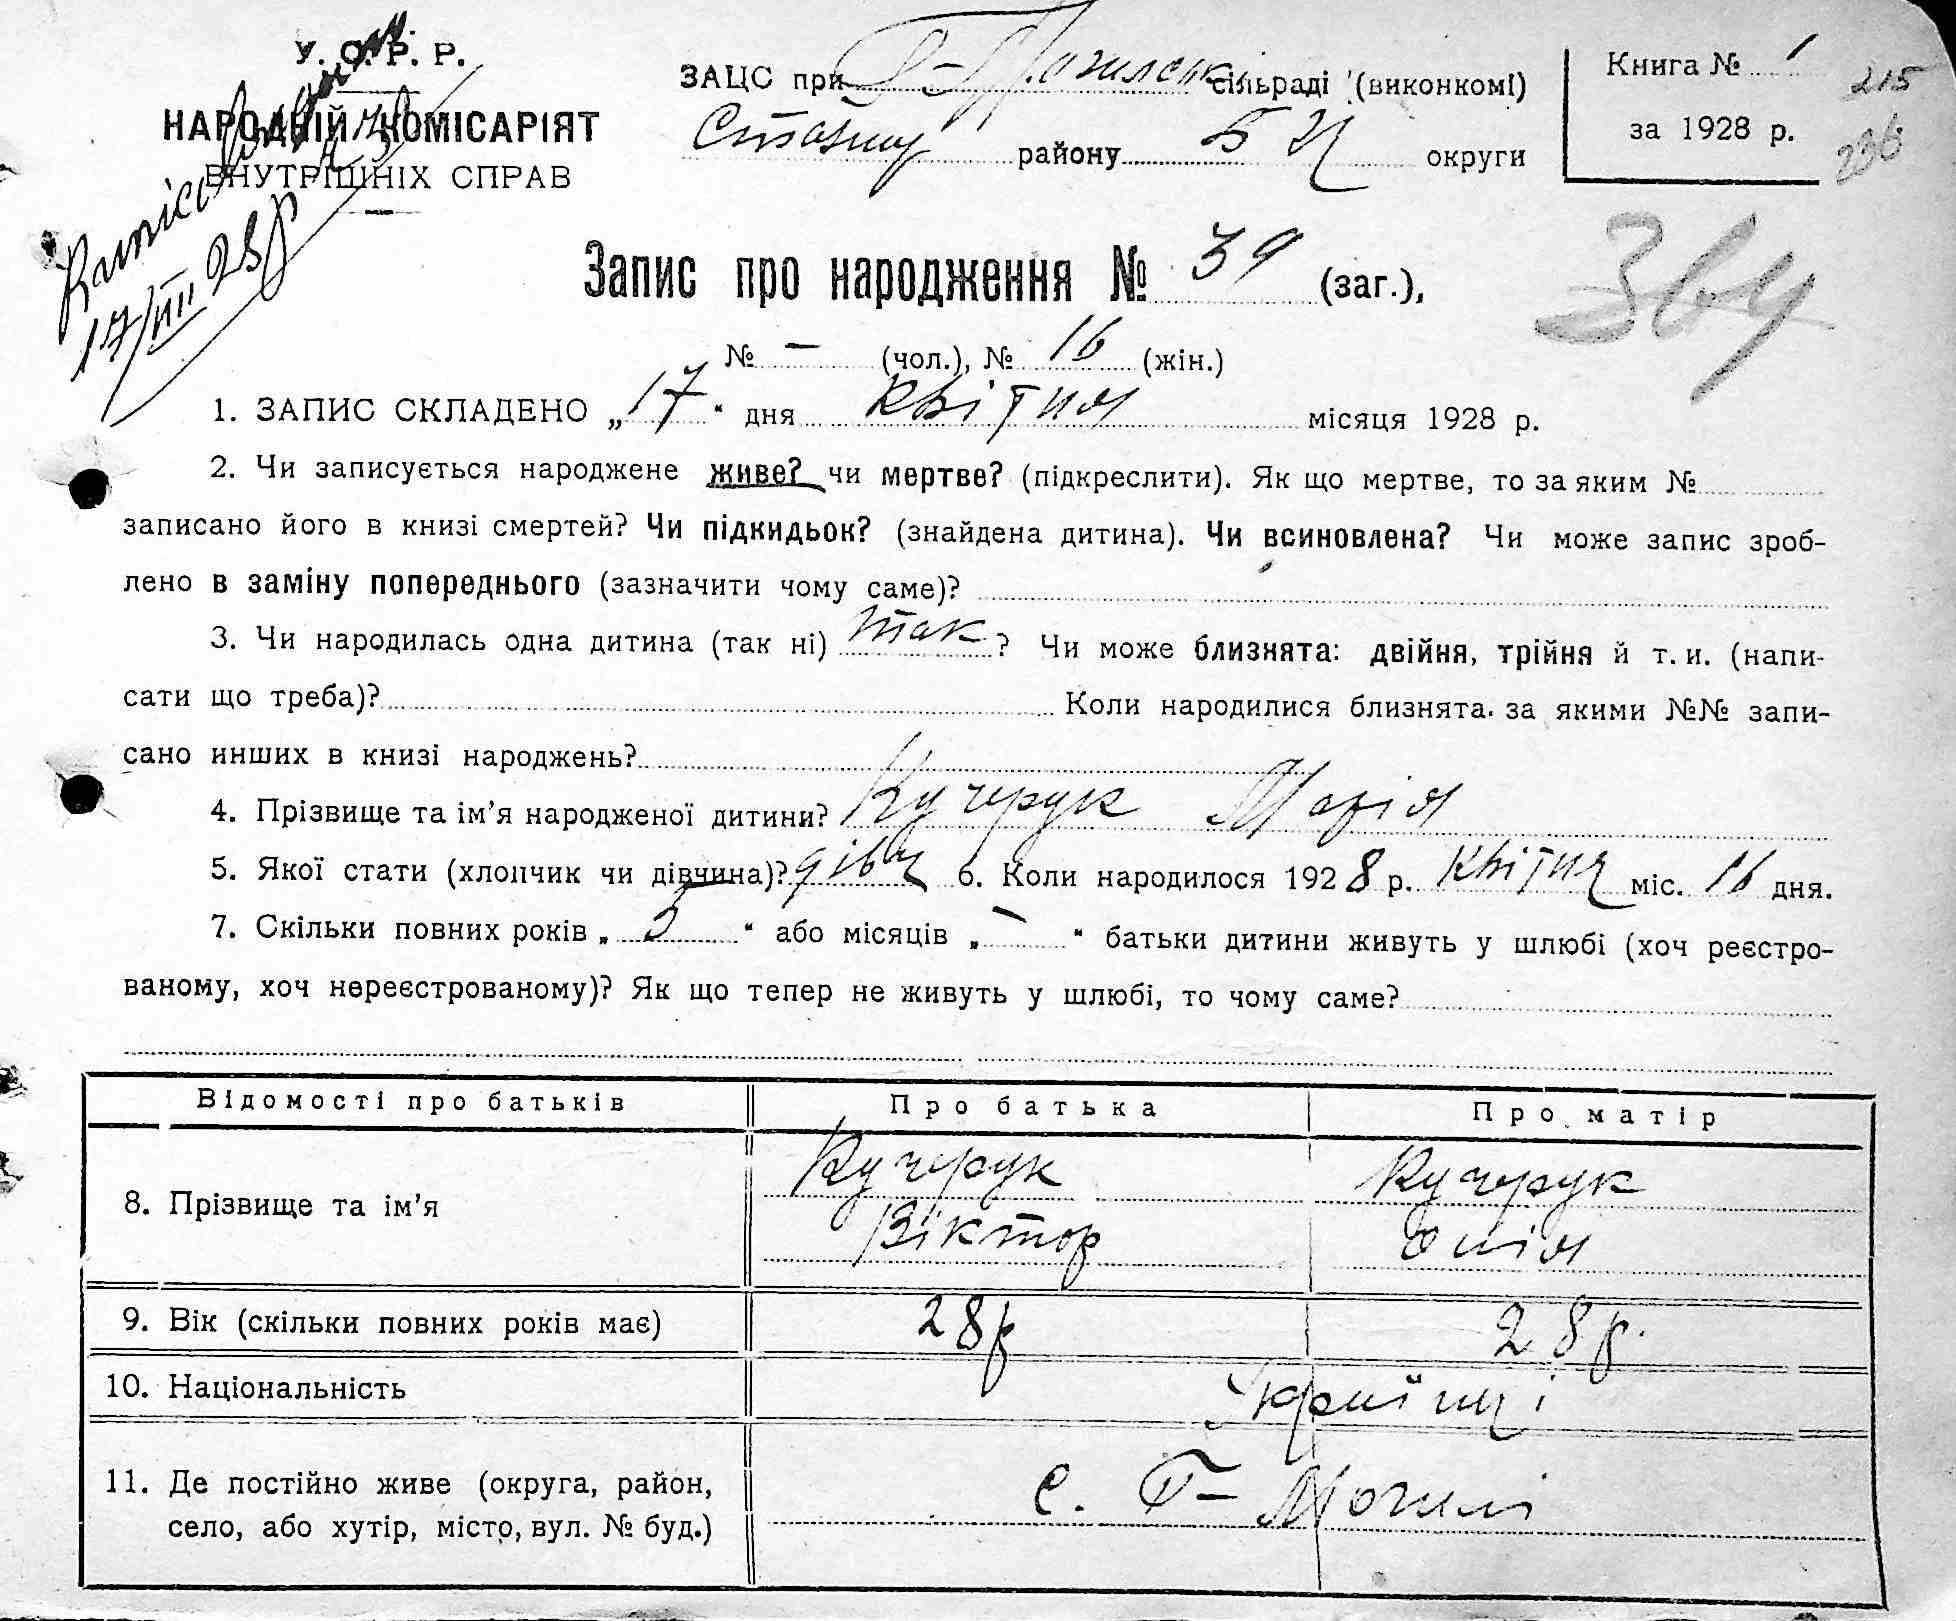 У. С. Р. Р.
НАРОДНІЙ КОМІСАРІЯТ
ВНУТРІШНІХ СПРАВ
ЗАЦС при сільраді (виконкомі)
району округи
Книга № 1
за 1928 р.
215
236
17/VIII 28 р
Запис про народження № 39 (заг.),
364
№ – (чол.), № 16 (жін.)
1. ЗАПИС СКЛАДЕНО „17“ дня квітня місяця 1928 р.
2. Чи записується народжене живе? чи мертве? (підкреслити). Як що мертве, то за яким №
записано його в книзі смертей? Чи підкидьок? (знайдена дитина). Чи всиновлена? Чи може запис зроб-
лено в заміну попереднього (зазначити чому саме)?
3. Чи народилась одна дитина (так ні) так? Чи може близнята: двійня, трійня й т. и. (напи-
сати що треба)? Коли народилися близнята. за якими №№ запи-
сано инших в книзі народжень?
4. Прізвище та ім'я народженої дитини? Кучерук Марія
5. Якої стати (хлопчик чи дівчина)? дівч 6. Коли народилося 1928 р. квітня міс. 16 дня.
7. Скільки повних років „5“ або місяців „–“ батьки дитини живуть у шлюбі (хоч реєстро-
ваному, хоч нереєстрованому)? Як що тепер не живуть у шлюбі, то чому саме?
Відомості про батьків Про батька Про матір
8. Прізвище та ім'я Кучерук Кучерук
Віктор Юлія
9. Вік (скільки повних років має) 28 р 28 р.
10. Національність Українці
11. Де постійно живе (округа, район,
село, або хутір, місто, вул. № буд.) с. Г-Могилі